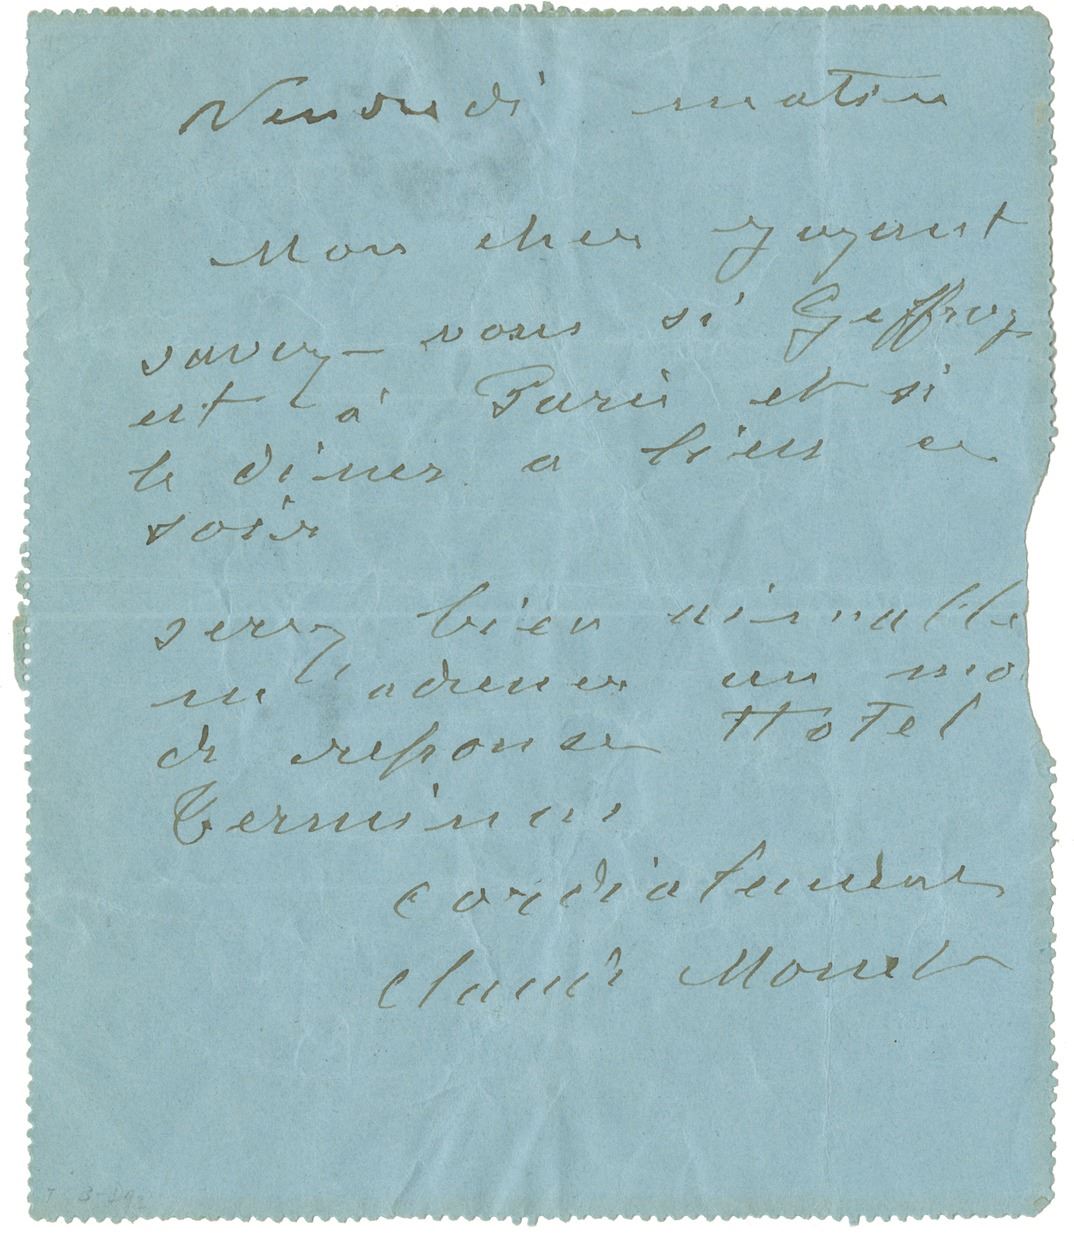 Vendredi matin
Mon cher Joyant
savez-vous si Geffroy
est à Paris et si
le diner a lieu ce
soir
serez bien aimable
m'adresser un mo
de reponse Hotel
Terminus
cordialement
Claude Monet